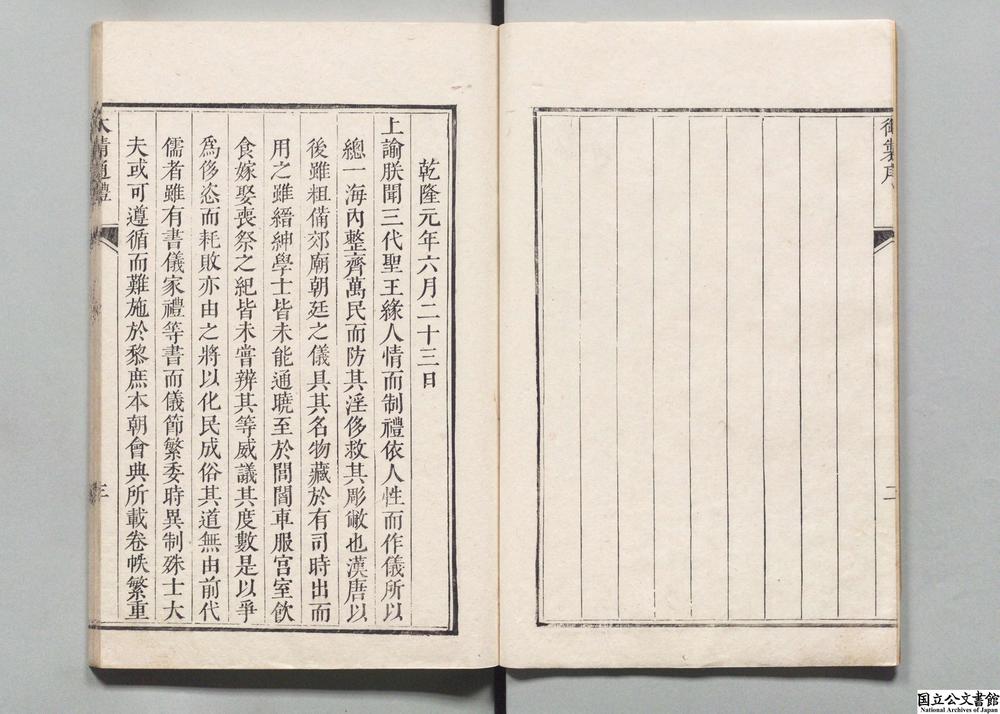 御製序
二
乾隆元年六月二十三日
上諭朕聞三代聖王緣人情而制禮依人性而作儀所以
總一海內整齊萬民而防其淫侈救其彫敝也漢唐以
後雖粗備郊廟朝廷之儀具其名物藏於有司時出而
用之雖縉紳學士皆未能通曉至於閭閻車服宫室飲
食嫁娶喪祭之紀皆未嘗辨其等威議其度數是以爭
爲侈恣而耗敗亦由之將以化民成俗其道無由前代
儒者雖有書儀家禮等書而儀節繁委時異制殊士大
夫或可遵循而難施於黎庶本朝會典所載卷帙繁重
大清通禮
三
国立公文書館
National Archives of Japan